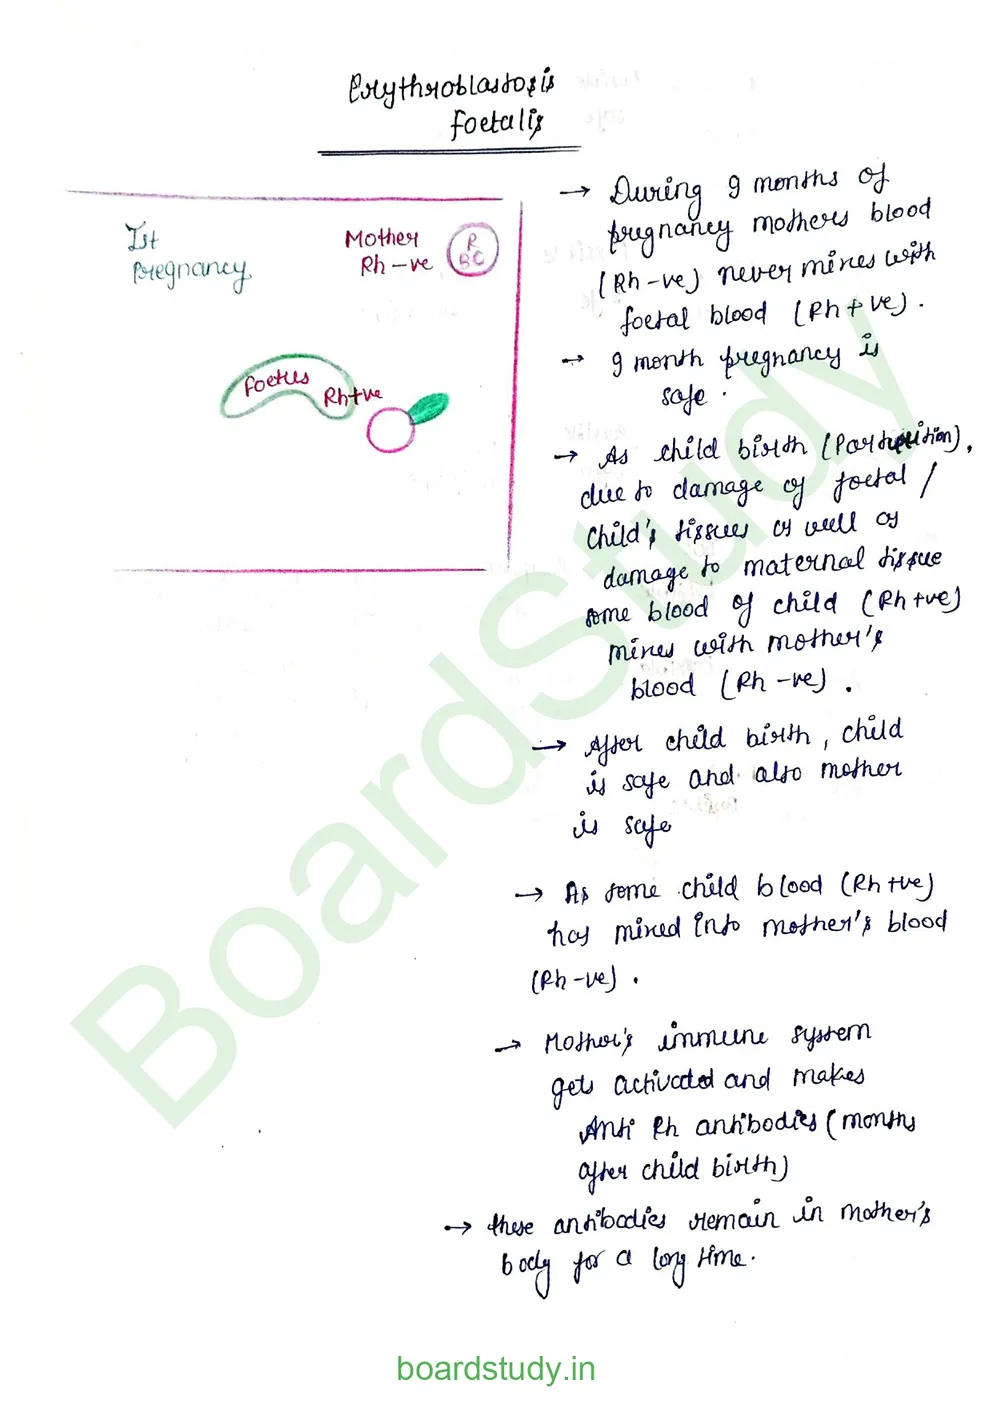 Erythroblastosis
foetalis
Ist
pregnancy
Mother
Rh -ve
R
BC
foetus
Rh+ve
→ During 9 months of
pregnancy mothers blood
(Rh -ve) never mixes with
foetal blood (Rh +ve).
→ 9 month pregnancy is
safe.
→ As child birth (Parturition),
due to damage of foetal /
child's tissues as well as
damage to maternal tissue
some blood of child (Rh +ve)
mixes with mother's
blood (Rh -ve).
→ After child birth, child
is safe and also mother
is safe
→ As some child blood (Rh +ve)
has mixed into mother's blood
(Rh -ve).
→ Mother's immune system
gets activated and makes
Anti Rh antibodies (months
after child birth)
→ these antibodies remain in mother's
body for a long time.
BoardStudy
boardstudy.in